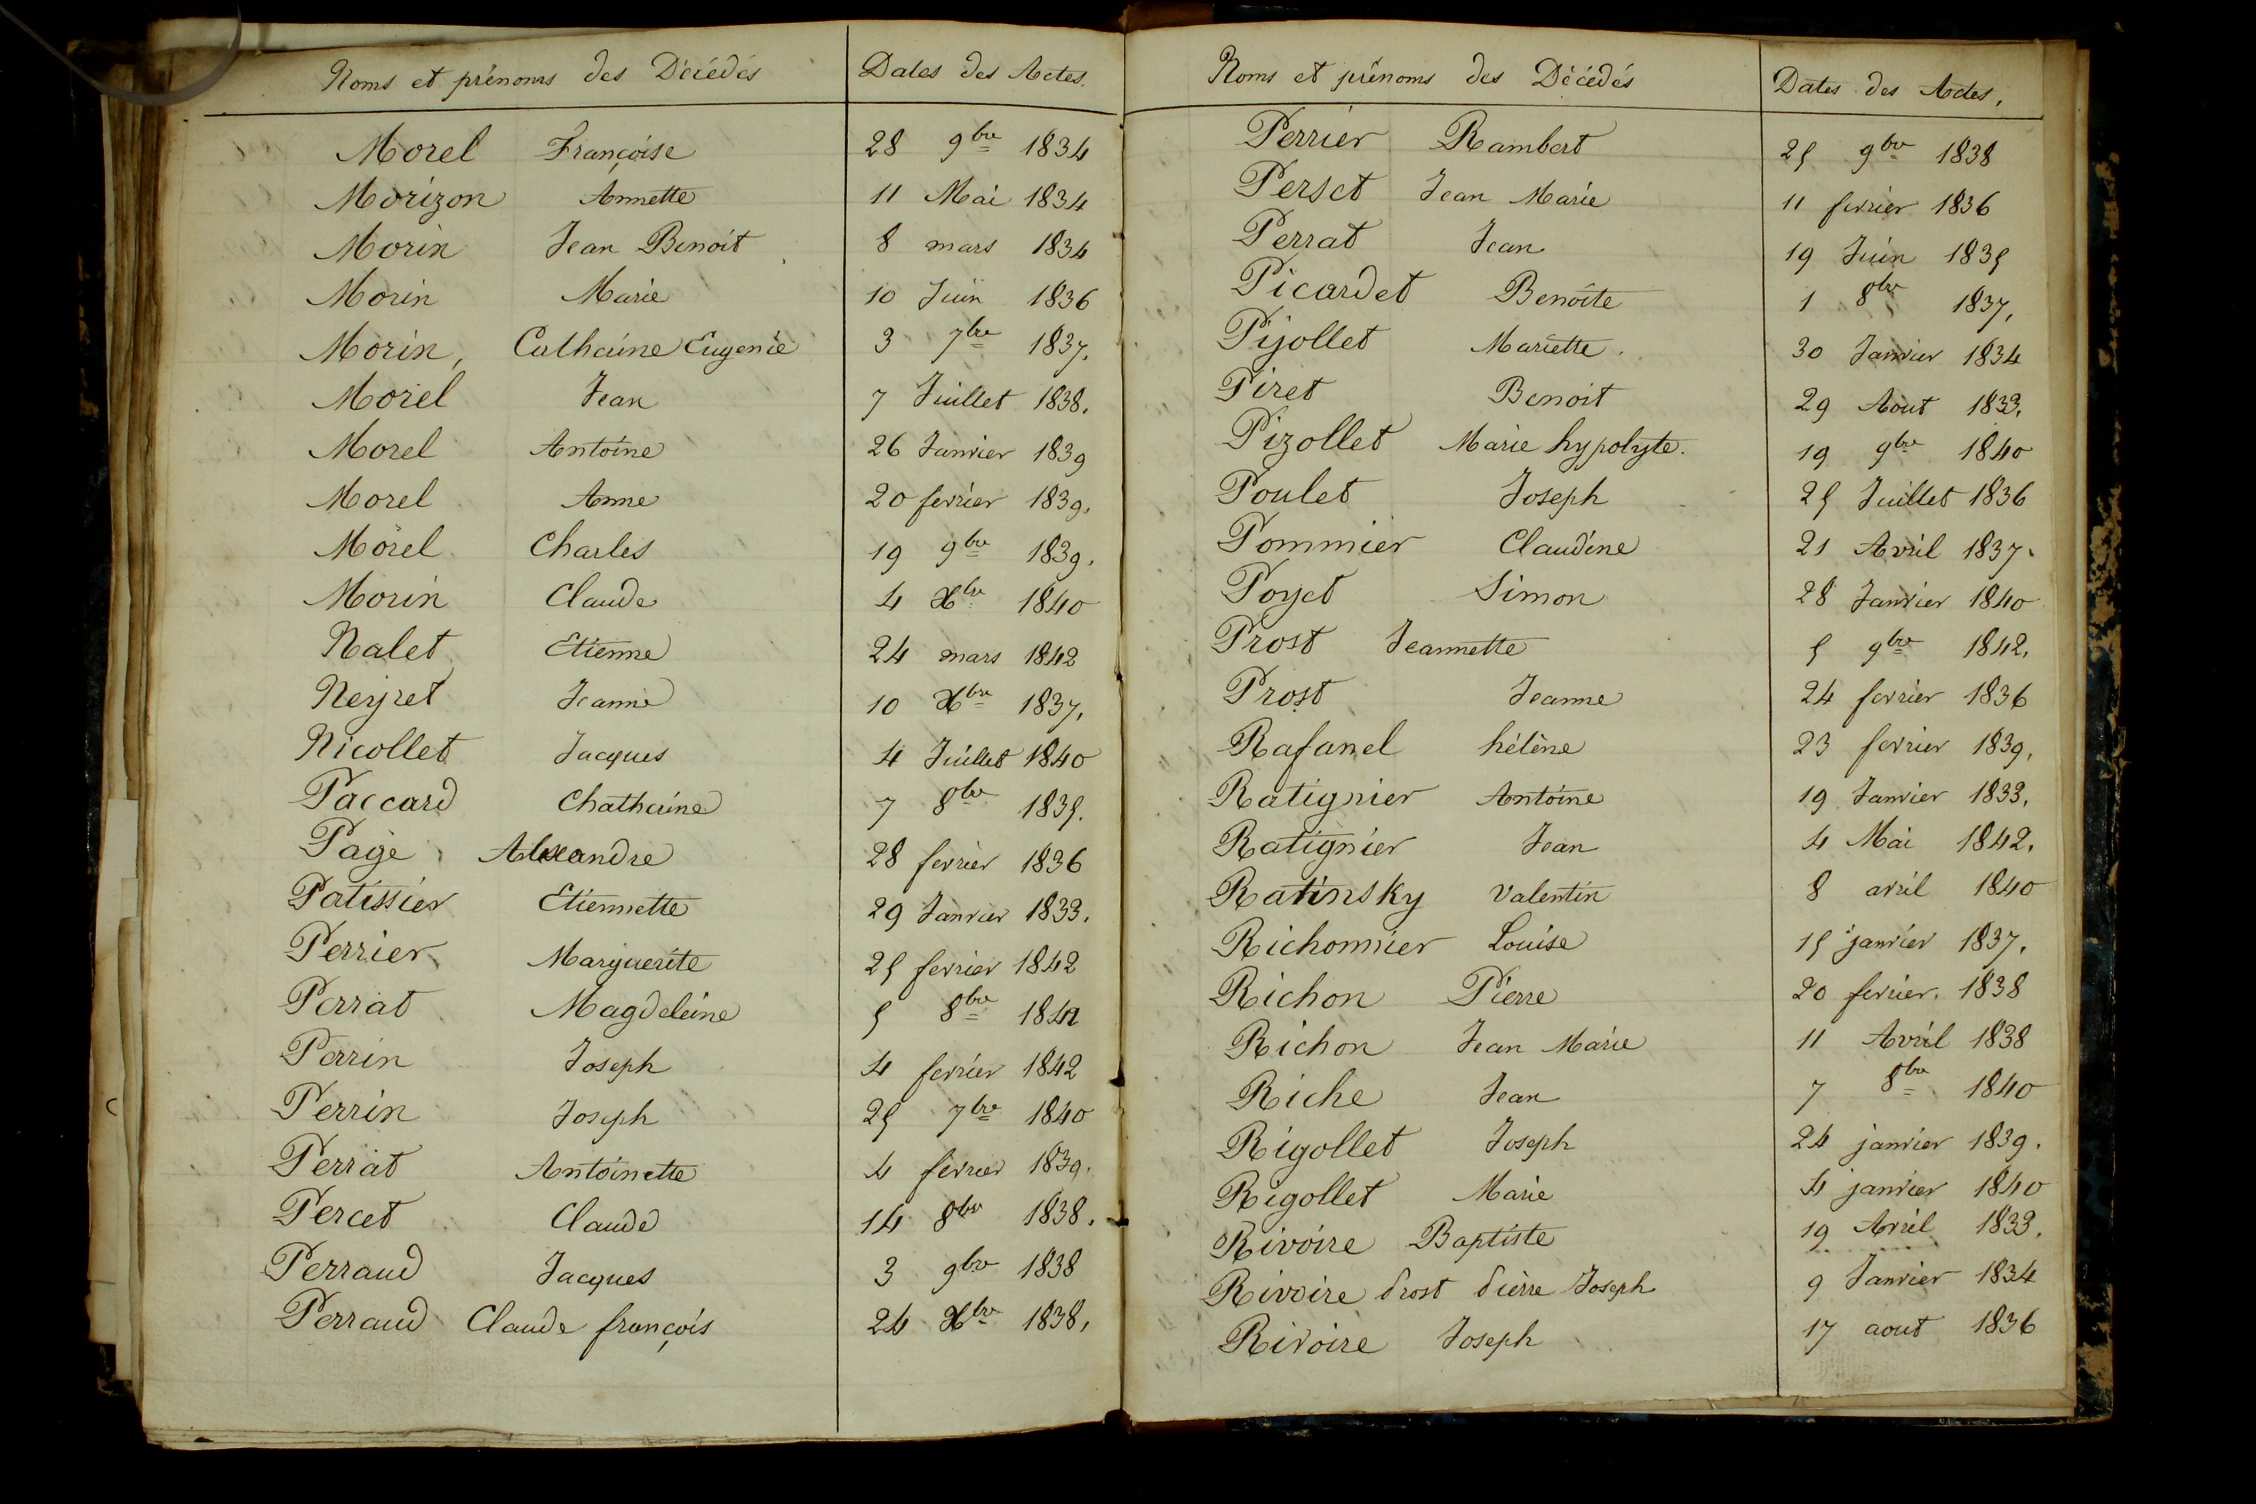 Noms et prénoms des Décédés Dates des Actes.
Morel Françoise 28 9bre 1834
Morizon Annette 11 Mai 1834
Morin Jean Benoit 8 mars 1834
Morin Marie 10 Juin 1836
Morin, Catherine Eugenie 3 7bre 1837.
Morel Jean 7 Juillet 1838.
Morel Antoine 26 Janvier 1839
Morel Anne 20 fevrier 1839.
Morel Charles 19 9bre 1839.
Morin Claude 4 Xbre 1840
Nalet Etienne 24 mars 1842
Neyret Jeanne 10 Xbre 1837.
Nicollet Jacques 4 Juillet 1840
Paccard Chatherine 7 8bre 1835.
Page Alexandre 28 fevrier 1836
Patissier Etiennette 29 Janvier 1833.
Perrier Marguerite 25 fevrier 1842
Perrat Magdeleine 5 8bre
Perrin Joseph 4 fevrier 1842
Perrin Joseph 25 7bre 1840
Perrat Antoinette 4 fevrier 1839.
Percet Claude 14 8bre 1838.
Perraud Jacques 3 9bre 1838
Perraud Claude françois 24 Xbre 1838.
Noms et prénoms des Décédés Dates des Actes.
Perrier Rambert 25 9bre 1838
Perset Jean Marie 11 fevrier 1836
Perrat Jean 19 Juin 1835
Picardet Benoîte 1 8bre 1837.
Pijollet Mariette. 30 Janvier 1834
Piret Benoit 29 Aout 1833.
Pizollet Marie hypolyte. 19 9bre 1840
Poulet Joseph 25 Juillet 1836
Pommier Claudine 21 Avril 1837.
Poyet Simon 28 Janvier 1840
Prost Jeannette 5 9bre 1842.
Prost Jeanne 24 fevrier 1836
Rafanel hélène 23 fevrier 1839.
Ratignier Antoine 19 Janvier 1833.
Ratignier Jean 4 Mai 1842.
Ratinsky Valentin 8 avril 1840
Richonnier Louise 15 janvier 1837.
Richon Pierre 20 fevrier. 1838
Richon Jean Marie 11 Avril 1838
Riche Jean 7 8bre 1840
Rigollet Joseph 24 janvier 1839.
Rigollet Marie 4 janvier 1840
Rivoire Baptiste 19 Avril 1833.
Rivoire Prost Pierre Joseph 9 Janvier 1834
Rivoire Joseph 17 aout 1836